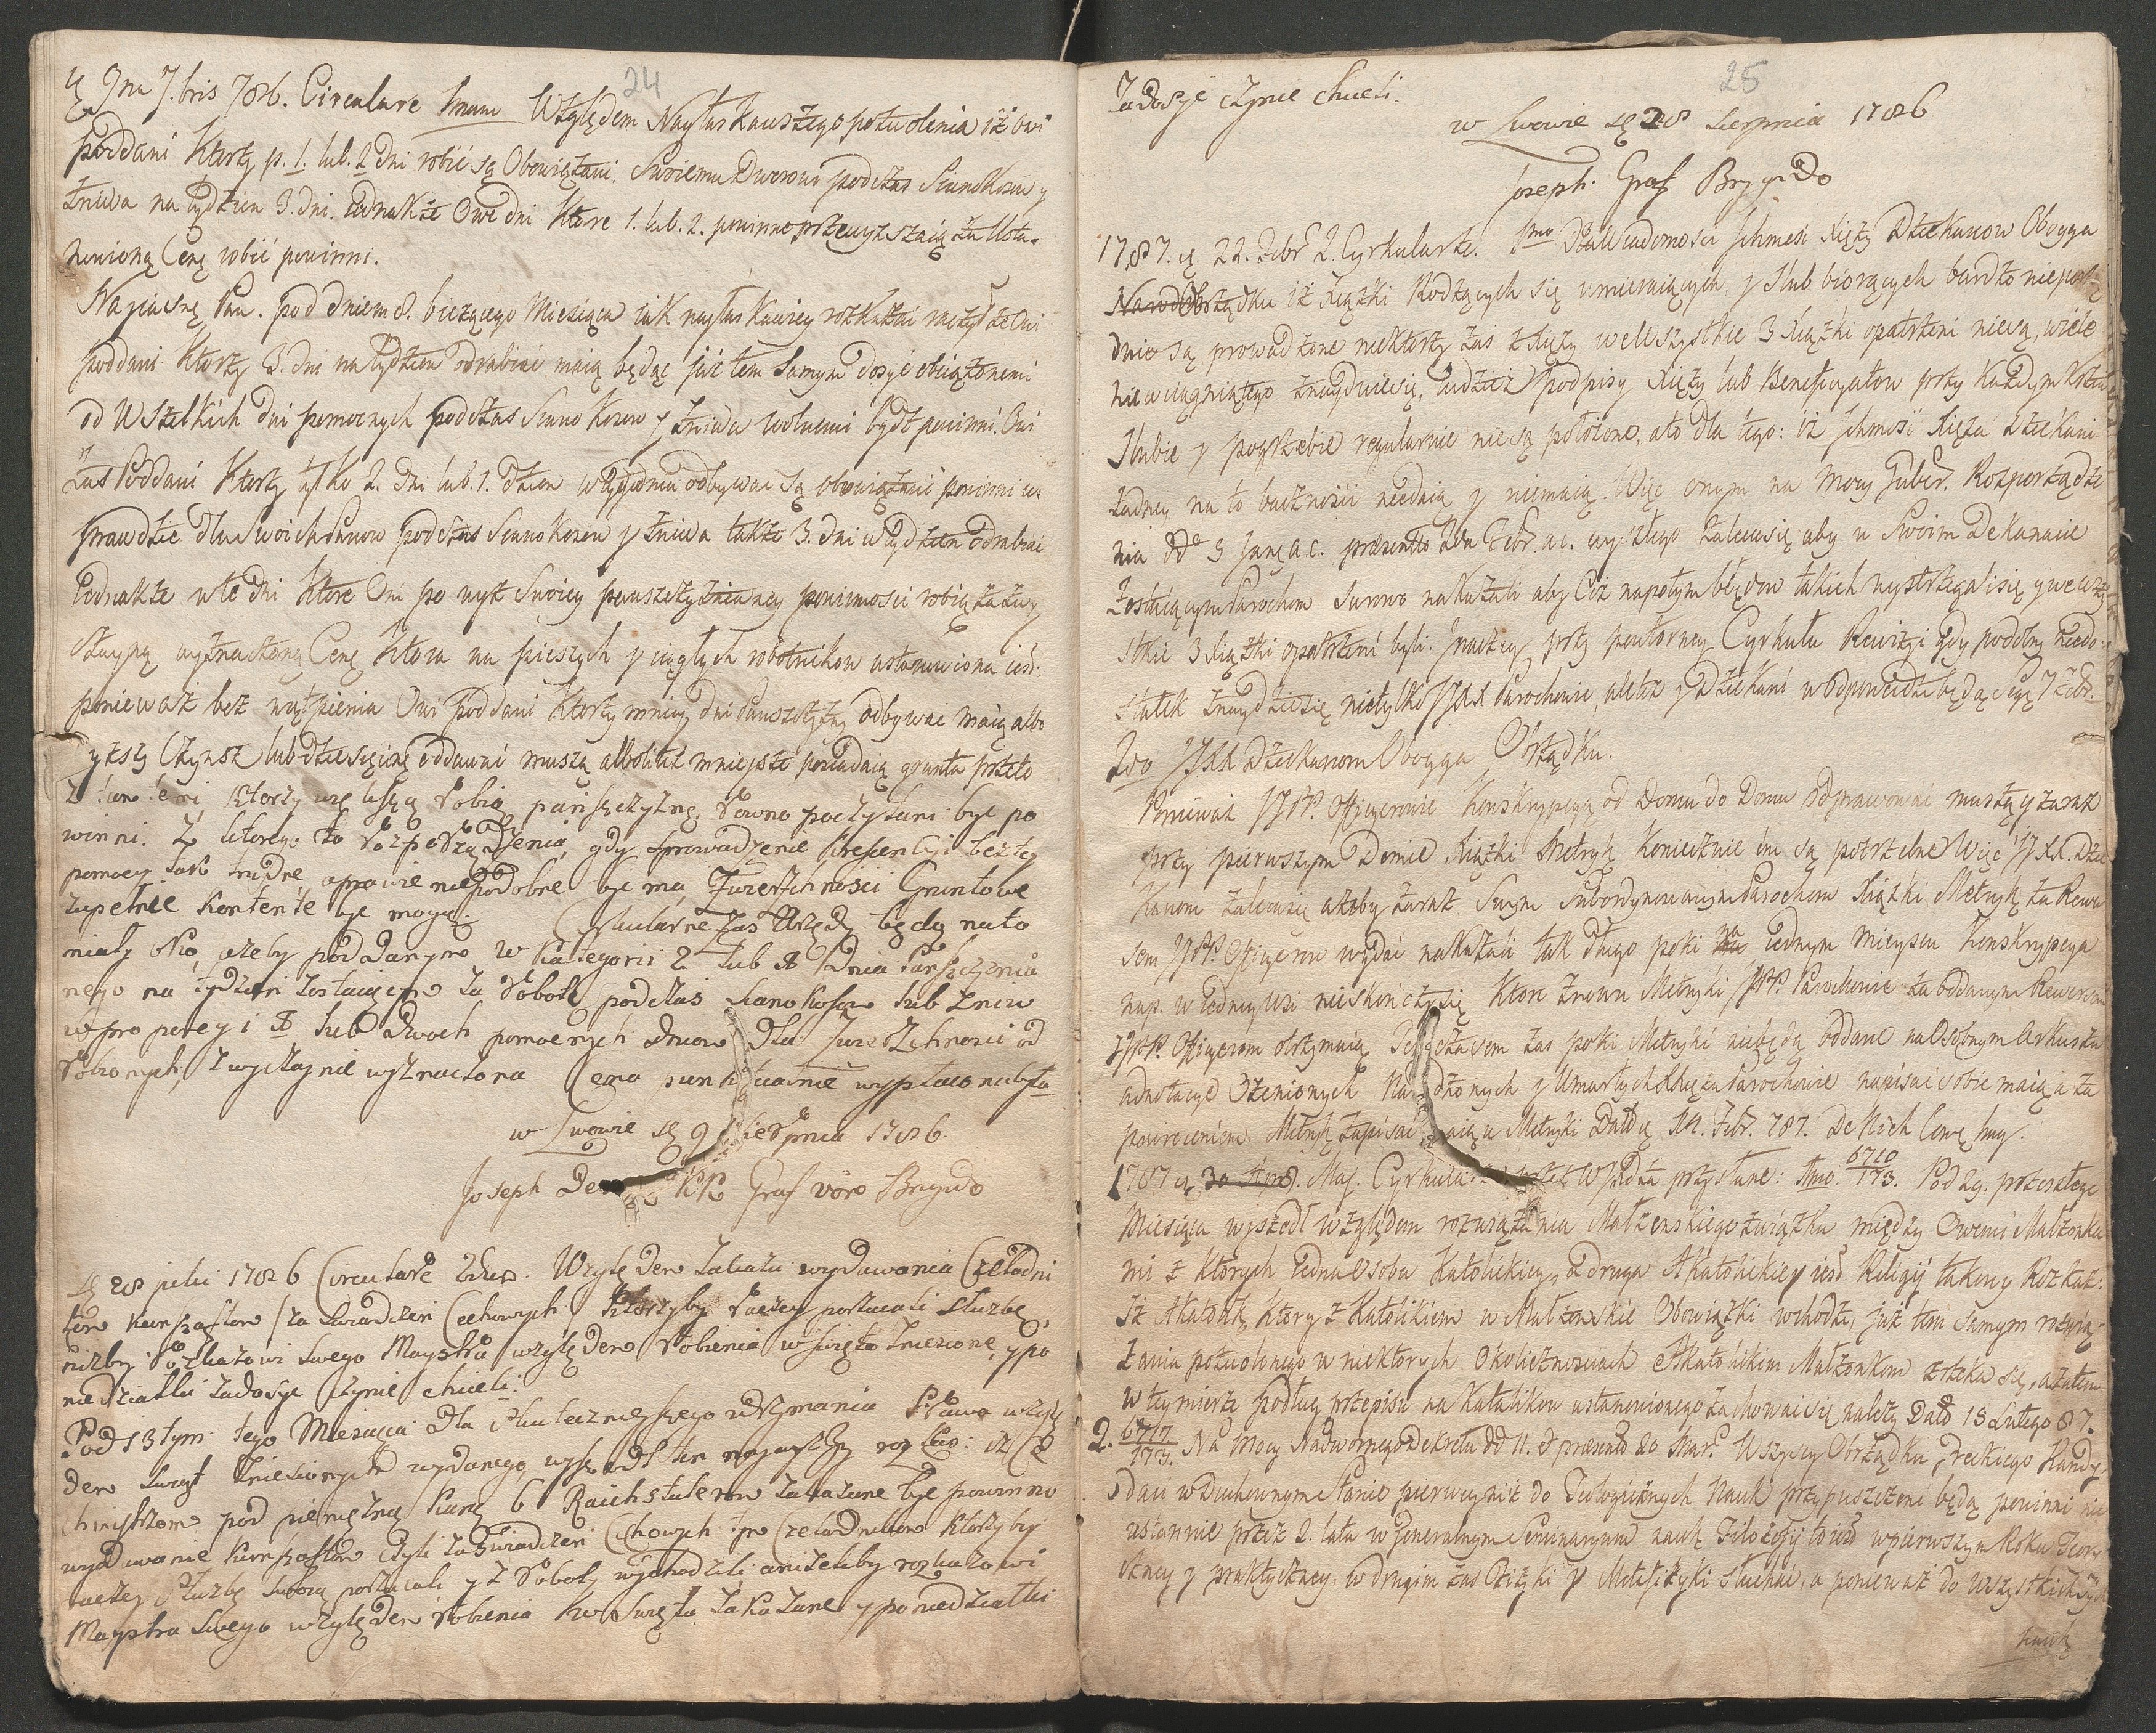 24
9na 7.bris 786. Circulare 1mum Względem Nayłaskawszego pozwolenia iż owi
poddani Ktorzy p. 1. lub. 2 dni robić są Obowiązani. Swoiemu Dworowi podczas Sianokosu y
żniwa na tydzien 3. dni. iednakże Owe dni Ktore 1. lub. 2. powinne przewyższaią za Usta-
nowioną Cenę robić powinni.
Nayiasnę Pan. pod dniem 8. bieżącego Miesiąca iak nayłaskawiey rozkazać raczył że Oni
poddani Ktorzy 3. dni na tydzien odrabiać maią będąc już tem Samym dosyć obciążonemi
od Wszelkich dni pomocnych podczas Siano kosow y żniwa wolnemi bydz powinni. Oni
zas Poddani Ktorzy tylko 2. dni lub. 1. dzien w tygodniu odbywac są obowiązani powinni w
prawdzie dla Swoich Panow podczas Sianokosow y żniwa także 3. dni w tydzien odrabiac
iednakże w te dni Ktore Oni po wyz Swoiey panszczyznianey powinnosci robią za zwy
czayną wyznaczoną Cenę Ktora na pieszych y ciągłych robotnikow ustanowiona iest:
ponieważ bez wątpienia Oni poddani Ktorzy mniey dni Panszczyzny odbywac maią albo
wyzszy Czynsz lub dziesięcinę oddawać muszą albo też mnieysze posiadaią grunta przeto
z temi ktorzy większą robią pańszczyznę, rowno poczytani byc po
winni. Z ktorego to rozporządzenia, gdy sprowadzenie krescencyi bez tey
pomocy tak trudne a prawie niepodobne byc ma, Zwierzchnosci Gruntowe
zupełnie kontente byc mogą. Cyrkularne zas Urzędy będą na to
miały Oko, ażeby poddanym w kategorii 2 lub 1 Dnia Panszczyznia
nego na tydzień zostaiącem za robotę podczas sianokosow lub żniw
w proporcyi 1 lub Dwoch pomocnych dniow Dla Zwierzchnosci od
robionych, zwyczaynie wyznaczona Cena punktualnie wypłacona była
w Lwowie d. 9 Sierpnia 1786.
Joseph Graf von Brigido
d. 28 julii 1786 Circulare 2dum. Względem Zakazu wydawania Czeladni
kom kunszaftow /: za swiadczeń Cechowych / ktorzyby raczey porzucali służbę,
niżby rozkazowi swego Maystra względem robienia w swięta zniesione, y po
niedziałki zadosyc czynic chcieli.
Pod 13tym tego Miesiąca Dla skutecznieyszego utrzymania Prawa wzglę
dem swiąt zniesionych wydanego, wyszedł ten naywyższy rozkaz: iż Ce
chmistrzom pod pieniężną karą 6 Raichstalerow zakazane byc powinno
wydawanie kunszaftow czyli zaswiadczeń Cechowych tym Czeladnikom ktorzyby
raczey służbę swoią porzucali y z roboty wychodzili aniżeliby rozkazowi
Maystra swego względem robienia w swięta zakazane y poniedziałki
25
Zadosyc czynic chcieli.
w Lwowie d. 28 Sierpnia 1786
Joseph. Graf Brygido
1787. d. 22. Febr 2. Cyrkularze. 1mo Dla Wiadomosci Jchmosi Xięży Dziekanow Oboyga
Obrządku iż Xiążki Rodzących się umieraiących, y Slub biorących bardzo nieporzą
dnie są prowadzone niektorzy zas z Xięży we Wszystkie 3 Xiążki opatrzeni niesą, wiele
nie wciągniątego znayduie się, tudziesz podpisy Xięży lub Beneficyatow przy Każdym Krzcie
Slubie y pogrzebie regularnie nie są położone, a to dla tego: iż Jchmosi Xięża Dziekani
żadney na to bacznosci niedaią y niemaią. Więc onym na Mocy Guber. Rozporządze
nia dd° 9 Janę a.c. prezentto Febr. ac. wyszłego zalecasię aby w Swoim Dekanacie
Zostaiącym Parochom Surowo nakazali aby Ciż napotym błędow takich wystrzegali się y we wszy
stkie 3 Xiążki opatrzeni byli. Inaczey przy powtorney Cyrkułu Rewizyi gdy podobny niedo-
statek znaydzie się nietylko JJXX Parochowie, ale też y Dziekani w odpowiedzi będą Segę 7 Febr.
2do JJXX Dziekanom Oboyga Obrządku.
Ponieważ JJPP. Officyerowie Konskrypcyą od Domu do Domu odprawowac muszą y zaraz
przy pierwszym Domie Xiążki Metryk Koniecznie im są potrzebne Więc JJXX. Dzie
kanom zaleca się ażeby zaraz Swym Subordynowanym Parochom Xiążki Metryk za Rewer
sem JJPP. Officyerom wydać nakazali tak długo poki na iednym mieyscu Konskrypcya
nap. w iedney wsi nieskończy się Ktore znowu Metryki JJPP. Parochowie za oddanym Rewersem
JJPP. Officyerom otrzymaią Tym czasem zas poki Metryki niebędą oddane na osobnym Arkuszu
adnotacye Ożenionych Narodzonych y Umarłych Xięża Parochowie napisać sobie maią a za
powroceniem Metryk zapisać maią w Metryki Dattū Febr. 787. De
1787 d. 30 Maj. Cyrkularze przez przysłane: 1mo. 6710/173. Pod 29. przeszłego
Miesiąca wyszedł względem rozwiązania Małzenskiego związku między Owemi Małżonka
mi z ktorych iedna Osoba Katolickiey, a druga Akatolickiey iest Religij takowy Rozkaz:
Iż Akatolik ktory z Katolikiem w Małzenskie Obowiązki wchodzi, już tem samym rozwią-
zania pozwolonego w niektorych okolicznosciach Akatolikim Małżonkom zrzeka się, a zatem
w tey mierze podług przepisu na Katolikow ustanowionego zachować się należy Datō 13 Lutego 87.
2. 6717/173. Na Mocy Nadwornego Dekretu dd 11. et praesentō 20 Mar. Wszyscy Obrządku Greckiego Kandy-
daci w Duchownym Stanie pierwey niż do Teologicznych Nauk przypuszczeni będą powinni nie
ustannie przez 2. lata w Generalnym Seminaryum nauk Filozofij to iest w pierwszym Roku Teory
czney y praktyczney. w drugim zas Fizyki y Metafizyki słuchać, a ponieważ do wszystkich tych
nauk